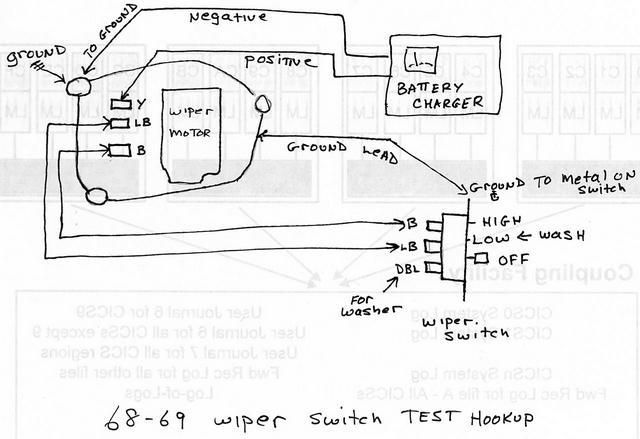 Negative
TO GROUND
GROUND
Positive
BATTERY
CHARGER
Y
LB
B
WIPER
MOTOR
GROUND LEAD
GROUND TO METAL ON
SWITCH
B
LB
DBL
HIGH
LOW ← WASH
OFF
FOR
WASHER
WIPER.
SWITCH
Coupling Facility
CICS0 System Log
CICSn System Log
Fwd Rec Log for file A - All CICSs
User Journal 6 for CICS9
User Journal 6 for all CICSs except 9
User Journal 7 for all CICS regions
Fwd Rec Log for all other files
Log-of-Logs
68-69 WIPER SWITCH TEST HOOKUP